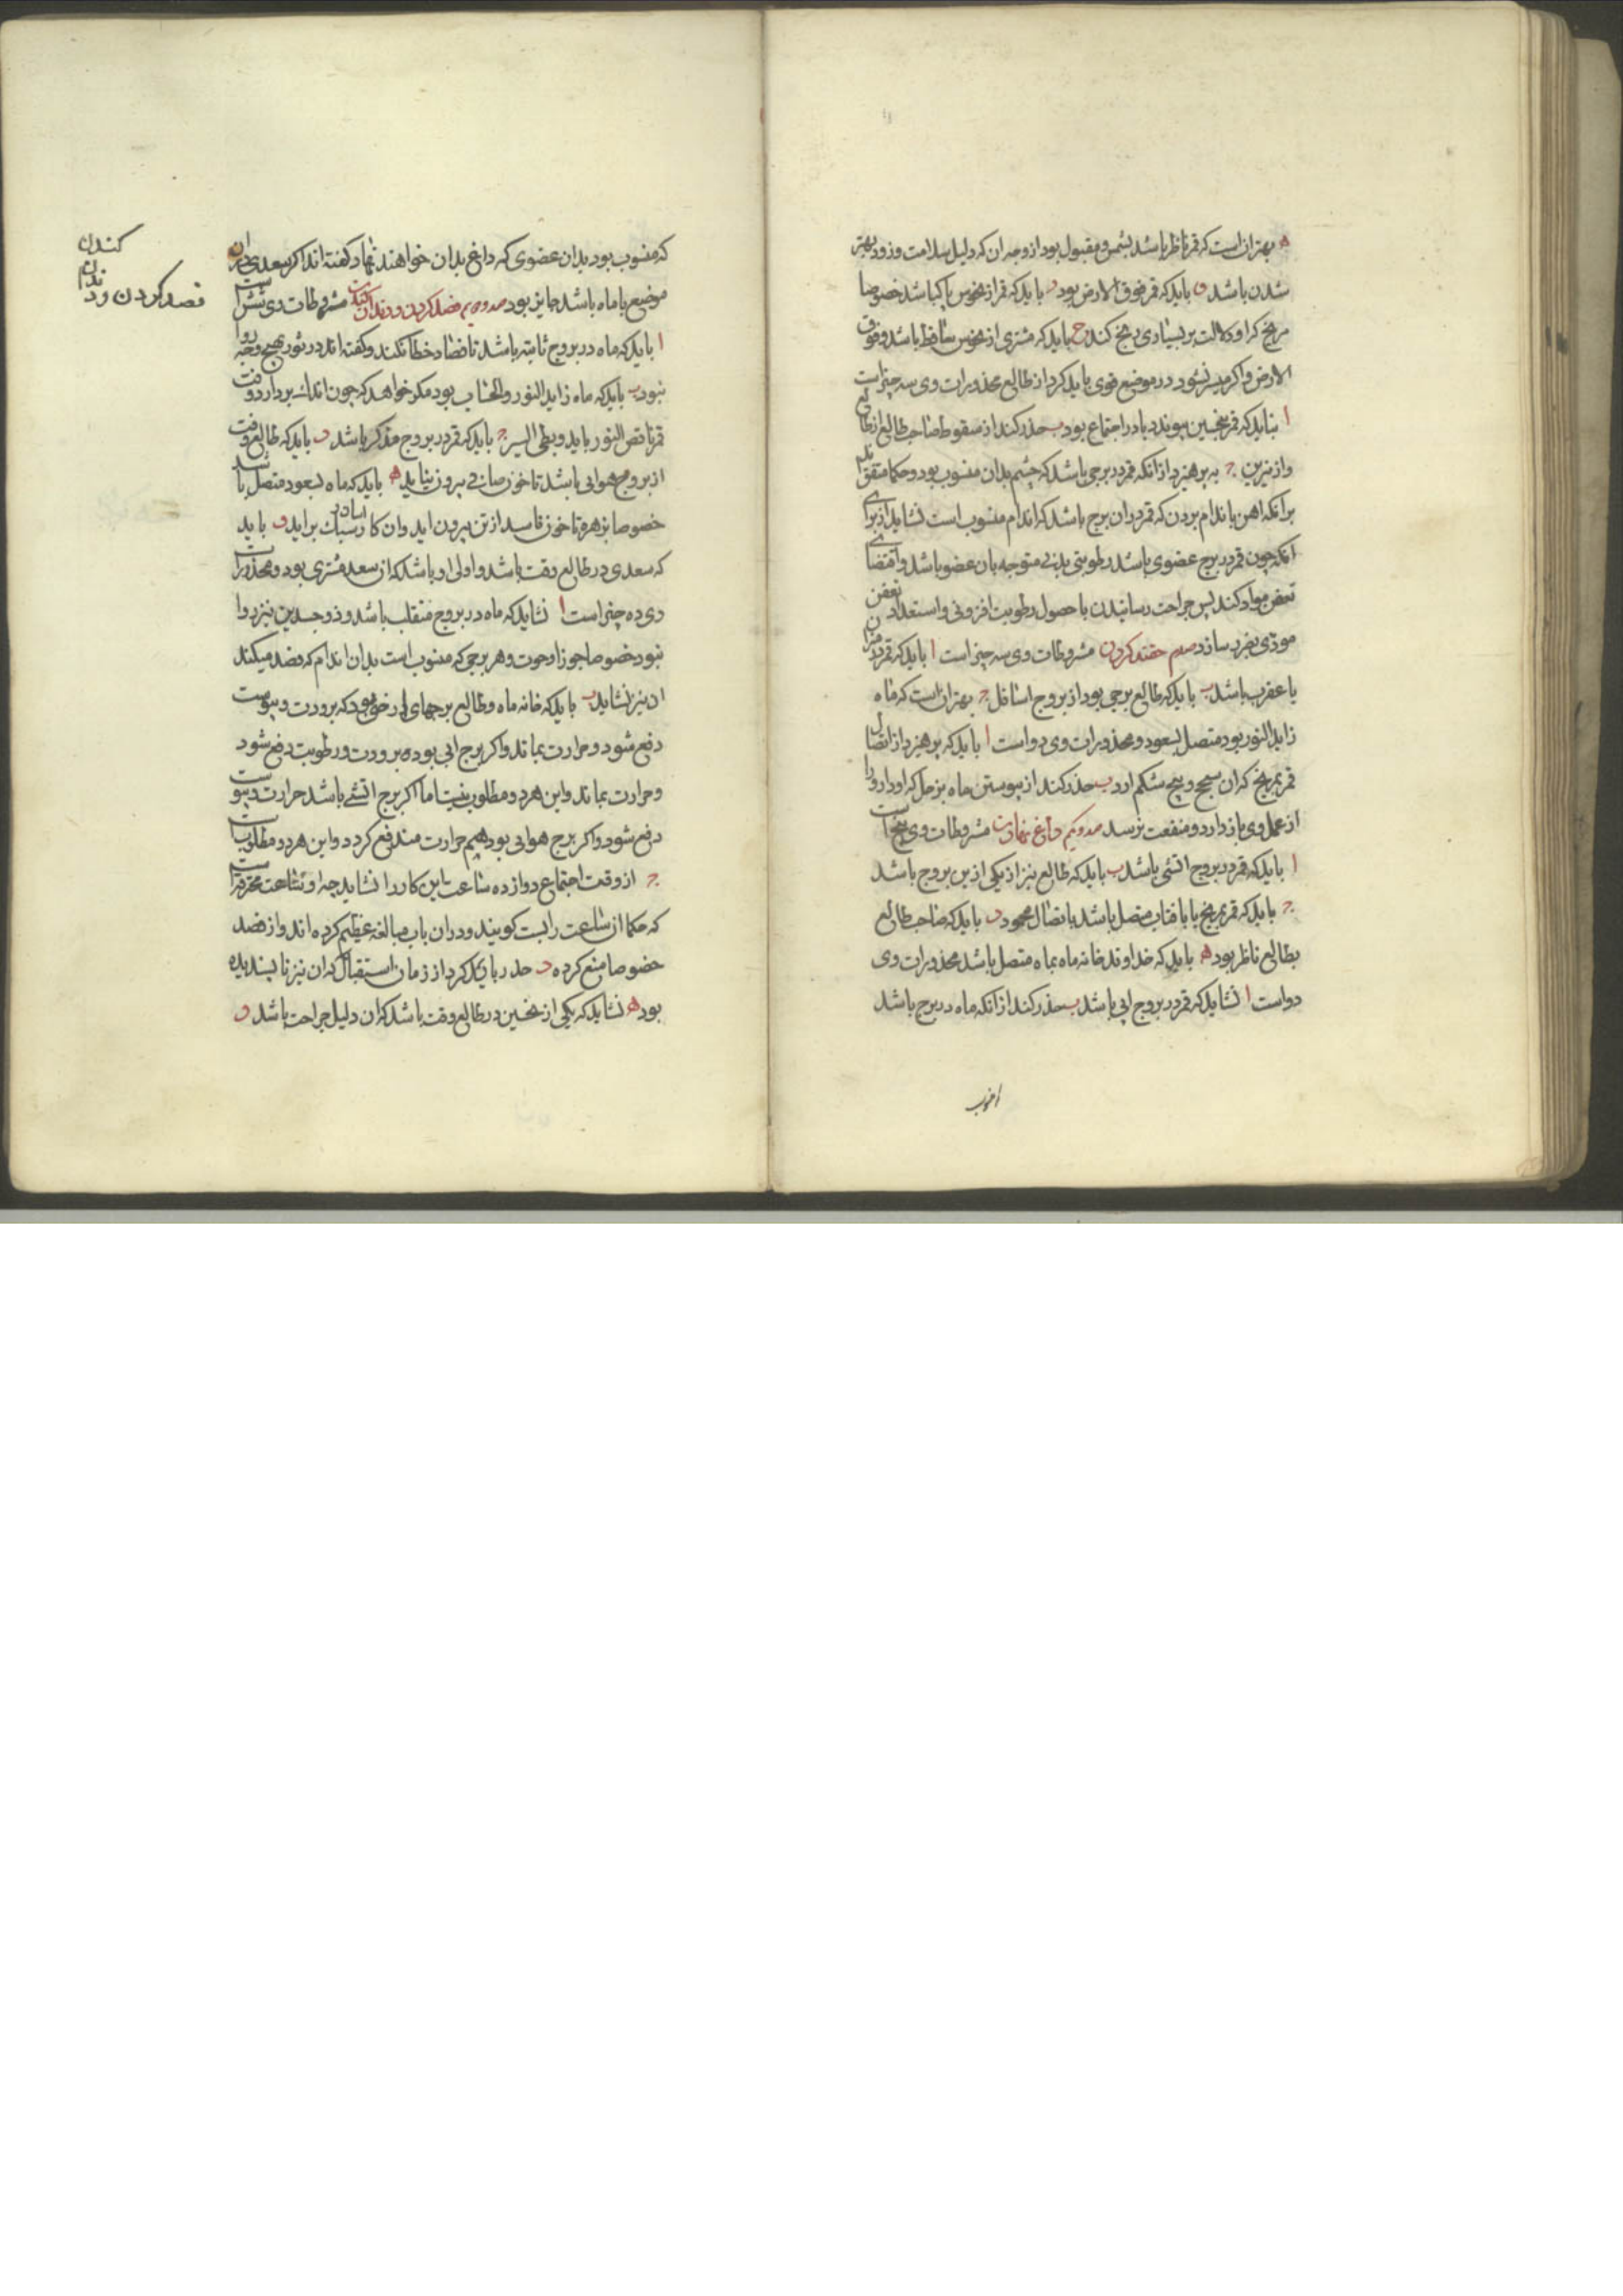 ه بهتر ان است که قمر ناظر باشد بشمس و مقبول بود از وجه ان که دلیل سلامت و زود بهتر
شدن باشد و باید که قمر فوق الارض بود ز باید که قمر از نحوس پاک باشد خصوصا
مریخ که او دلالت بر بسیاری رنج کند ح باید که مشتری از نحوس ساقط باشد و فوق
الارض و اکر میسر نشود در موضع قوی باید کرد از طالع محذورات وی سه چیز است
ا نباید که قمر بنحسین پیوندد یا در اجتماع بود ب حذر کند از سقوط صاحب طالع از طالع
و از نیرین ج بپرهیزد از انکه قمر در برجی باشد که چشم بدان منسوب بود و حکما متفق
براند که اهن باندام بردن که قمر در ان برج باشد که اندام منسوب است نشاید از برای
انکه چون قمر در برج عضوی باشد رطوبتی بدنی متوجه بان عضو باشد و اقتضای
تعفن مواد کند پس جراحت رسانیدن با حصول رطوبت افزونی و استعداد تعفن
موذی بضرر سازد صدم حقنه کردن مشروطات وی سه چیز است ا باید که قمر در میزان
یا عقرب باشد ب باید که طالع برجی بود از بروج اسافل ج بهتر ان است که ماه
زاید النور بود متصل بسعود و محذورات وی دو است ا باید که پرهیزد از اتصال
قمر بمریخ که ان سحج و پیچ شکم ارد ب حذر کند از پیوستن ماه بزحل که او دارو را
از عمل وی باز دارد و منفعت نرسد صد و یکم داغ نهادن مشروطات وی پنج است
ا باید که قمر در بروج اتشی باشد ب باید که طالع نیز از یکی ازین بروج باشد
ج باید که قمر بمریخ یا بافتاب متصل باشد باتصال محمود د باید که صاحب طالع
بطالع ناظر بود ه باید که خداوند خانه ماه بماه متصل باشد محذورات وی
دو است ا نشاید که قمر در بروج ابی باشد ب حذر کند از انکه ماه در برج باشد
که منسوب بود بدان عضوی که داغ بدان خواهند نهاد و کفته اند اکر سعدی در ان
موضع با ماه باشد جایز بود صد و دویم فصد کردن و دندان کندن مشروطات وی شش است
ا باید که ماه در بروج ثابته باشد تا فصاد خطا نکند و کفته اند در ثور بهیچ وجه روا
نبود ب باید که ماه زاید النور و الحساب بود مکر خواهد که خون اندک بردارد وقت
قمر ناقص النور باید و بطی السیر ج باید که قمر در بروج مذکر باشد د باید که طالع وقت
از بروج هوایی باشد تا خون صافی بیرون نیاید ه باید که ماه بسعود متصل باشد
خصوصا بزهره تا خون فاسد از تن بیرون اید و ان کار سبک براید و باید
که سعدی در طالع وقت باشد و اولی او باشد که ان سعد مشتری بود و محذورات
وی ده چیز است ا نشاید که ماه در بروج منقلب باشد و ذو جسدین نیز روا
نبود خصوصا جوزا و حوت و هر برجی که منسوب است بدان اندام که فصد میکند
ان نیز نشاید ب باید که خانه ماه و طالع برجهای نبود که برودت و یبوست
دفع شود و حرارت بماند و اکر برج ابی بود برودت و رطوبت دفع شود
و حرارت بماند و این هر دو مطلوب نیست اما اکر برج اتشی باشد حرارت و یبوست
دفع شود و اکر برج هوایی بود هم حرارت مندفع کردد و این هر دو مطلوب است
ج از وقت اجتماع دوازده ساعت این کار را نشاید چه او ساعت محترقه است
که حکما ان ساعت را بست کویند و در ان باب مبالغه عظیم کرده اند و از فصد
خصوصا منع کرده د حذر باید کرد از زمان استقبال که ان نیز ناپسندیده
بود ه نشاید که یکی از نحسین در طالع وقت باشد که ان دلیل جراحت باشد و
فصد کردن و دندان
کندن